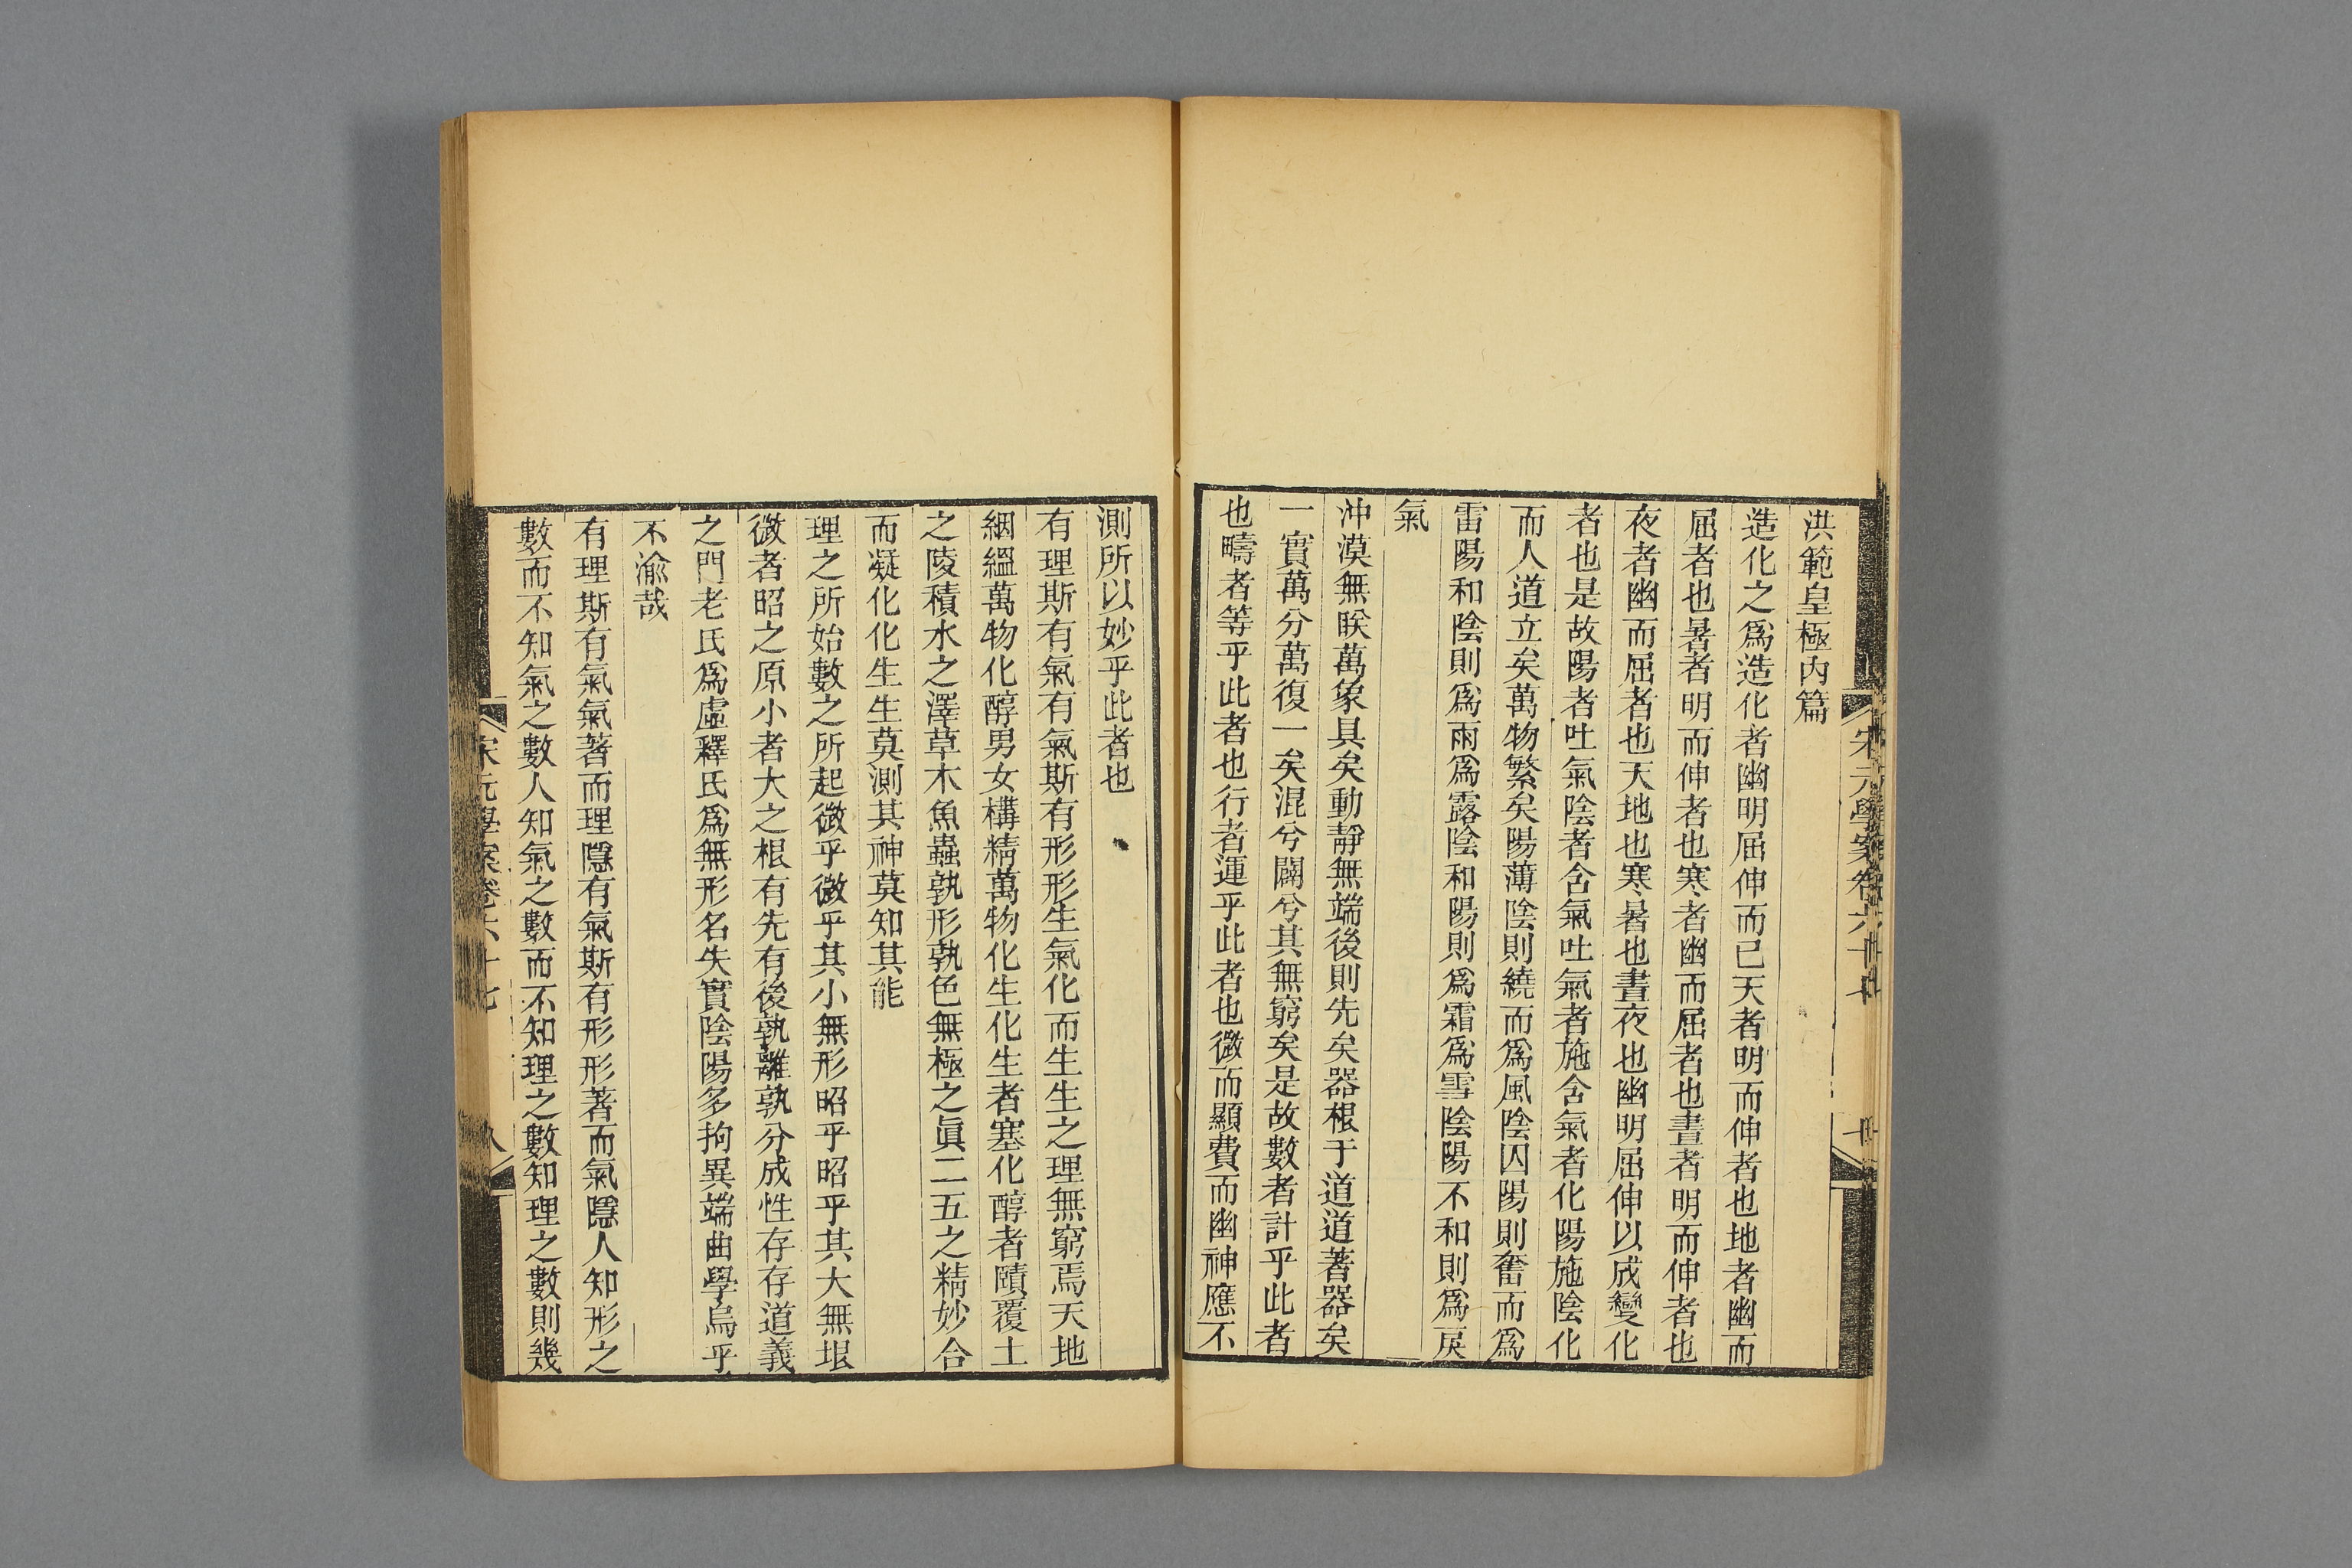 洪範皇極內篇
造化之爲造化者幽明屈伸而已天者明而伸者也地者幽而
屈者也暑者明而伸者也寒者幽而屈者也晝者明而伸者也
夜者幽而屈者也天地也寒暑也晝夜也幽明屈伸以成變化
者也是故陽者吐氣陰者含氣吐氣者施含氣者化陽施陰化
而人道立矣萬物繁矣陽薄陰則繞而爲風陰囚陽則奮而爲
雷陽和陰則爲雨爲露陰和陽則爲霜爲雪陰陽不和則爲戾
氣
沖漠無眹萬象具矣動靜無端後則先矣器根于道道著器矣
一實萬分萬復一矣混兮闢兮其無窮矣是故數者計乎此者
也疇者等乎此者也行者運乎此者也微而顯費而幽神應不
測所以妙乎此者也
有理斯有氣有氣斯有形形生氣化而生生之理無窮焉天地
絪縕萬物化醇男女構精萬物化生化生者塞化醇者賾覆土
之陵積水之澤草木魚蟲孰形孰色無極之眞二五之精妙合
而凝化化生生莫測其神莫知其能
理之所始數之所起微乎微乎其小無形昭乎昭乎其大無垠
微者昭之原小者大之根有先有後孰離孰分成性存存道義
之門老氏爲虛釋氏爲無形名失實陰陽多拘異端曲學烏乎
不渝哉
有理斯有氣氣著而理隱有氣斯有形形著而氣隱人知形之
數而不知氣之數人知氣之數而不知理之數知理之數則幾
宋元學案卷六十七
八